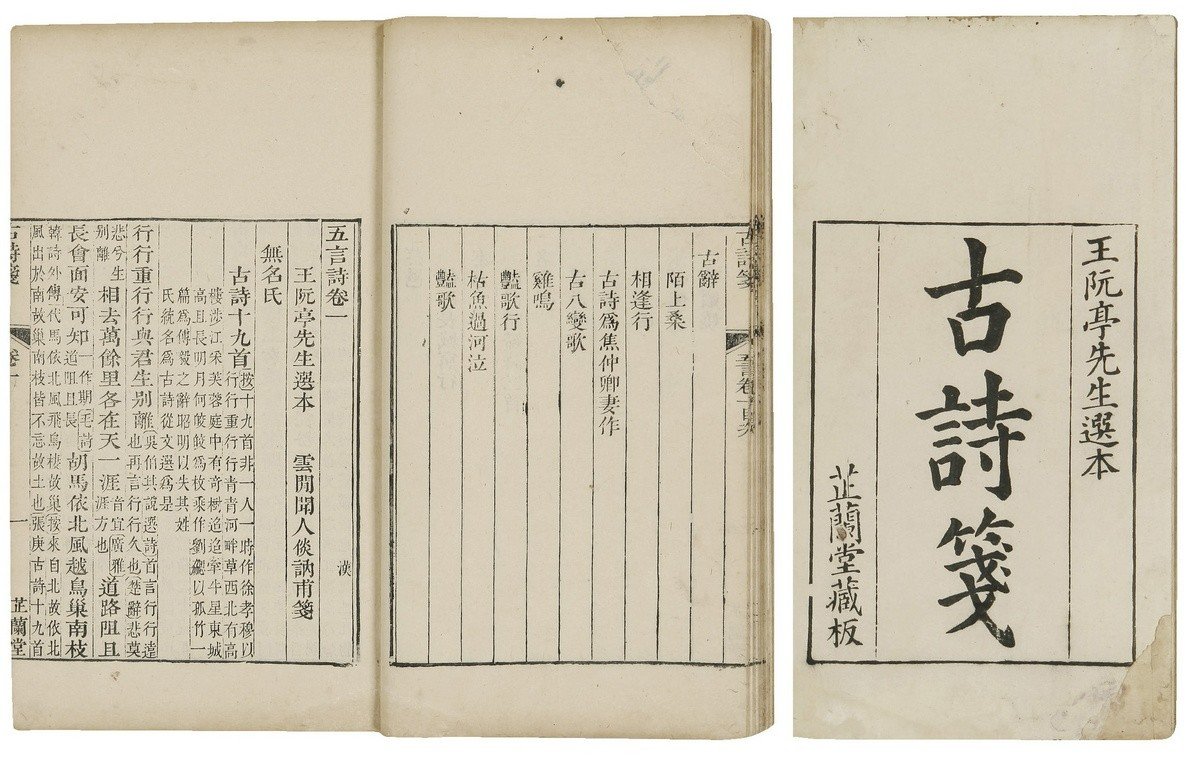 王阮亭先生選本
古詩箋
芷蘭堂藏板
古詩箋 五言卷一目錄
古辭
陌上桑
相逢行
古詩爲焦仲卿妻作
古八變歌
雞鳴
豔歌行
枯魚過河泣
豔歌
五言詩卷一
漢
王阮亭先生選本 雲間聞人倓訥甫箋
無名氏
古詩十九首 按十九首非一人一時作徐孝穆以
行行重行行青青河畔草西北有高
樓涉江采芙蓉庭中有奇樹迢迢牽牛星東城
高且長明月何皎皎爲枚乘作劉勰以孤竹一
篇爲傅毅之辭昭明以失其姓
氏統名爲古詩從文選爲是
行行重行行與君生別離 吳伯其說選詩首言行行遠也再言行行久也楚辭悲莫
悲兮生別離 相去萬餘里各在天一涯 音宜廣雅涯方也 道路阻且
長會面安可知 一作期毛詩道阻且長 胡馬依北風越鳥巢南枝
韓詩外傳代馬依北風飛鳥棲故巢 來自北故依北
風出於南故巢南枝皆不忘故土也張庚古詩十九首
古詩箋 卷一 一 芷蘭堂